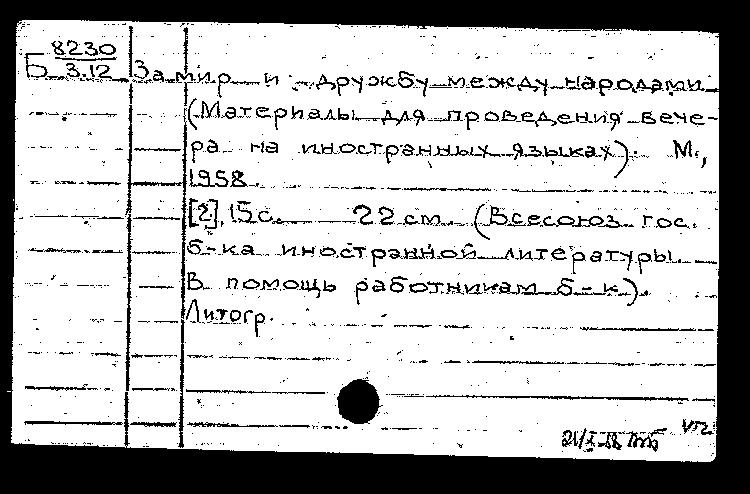 8230
Б 3.12 За мир и дружбу между народами
(Материалы для проведения вече-
ра на иностранных языках). М.,
1958.
[2], 15 с. 22 см. (Всесоюз. гос.
б-ка иностранной литературы.
В помощь работникам б-к).
Литогр.